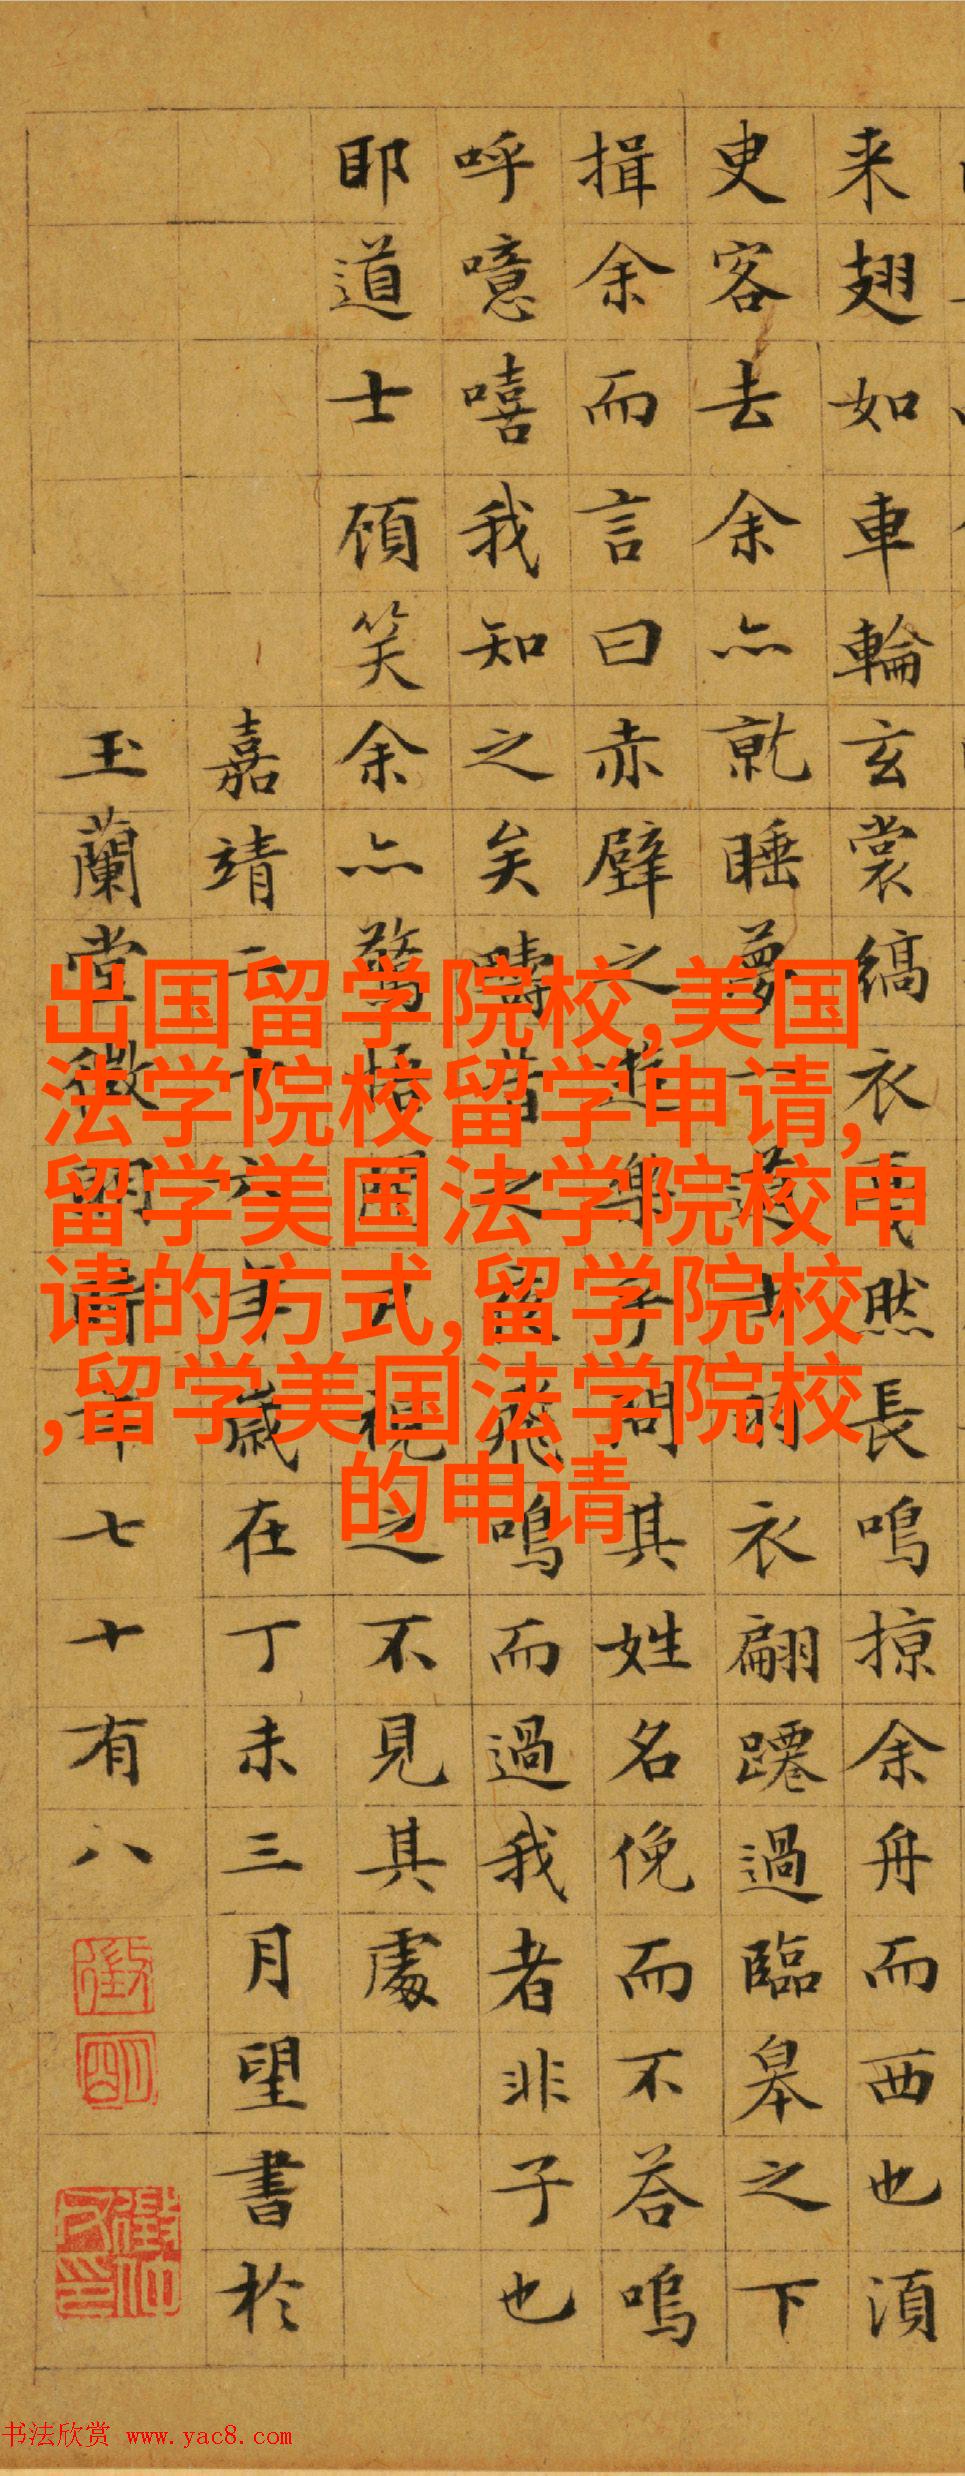 来翅如車輪玄裳縞衣戛然長鳴掠余舟而西也須
臾客去余亦就睡夢一道士羽衣翩躚過臨皋之下
揖余而言曰赤壁之遊樂乎問其姓名俛而不荅嗚
呼噫嘻我知之矣疇昔之夜飛鳴而過我者非子也
耶道士顧笑余亦驚悟開户視之不見其處
嘉靖二十六年歲在丁未三月望書於
玉蘭堂徵明時年七十有八
徵
明
出国留学院校,美国
法学院校留学申请,
留学美国法学院校申
请的方式,留学院校
,留学美国法学院校
的申请
书法欣赏 www.yac8.com